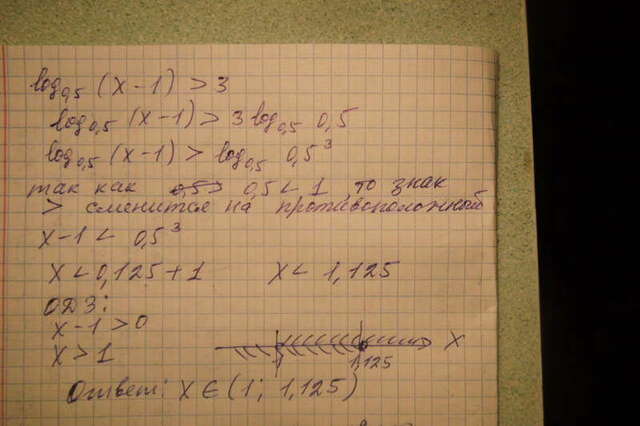 log₀,₅ (x-1) > 3
log₀,₅ (x-1) > 3 log₀,₅ 0,5
log₀,₅ (x-1) > log₀,₅ 0,5³
так как 0,5 < 1, то знак
> сменится на противоположный
x-1 < 0,5³
x < 0,125+1 x < 1,125
ОДЗ:
x-1 > 0
x > 1
1 1,125 x
Ответ: x ∈ (1; 1,125)